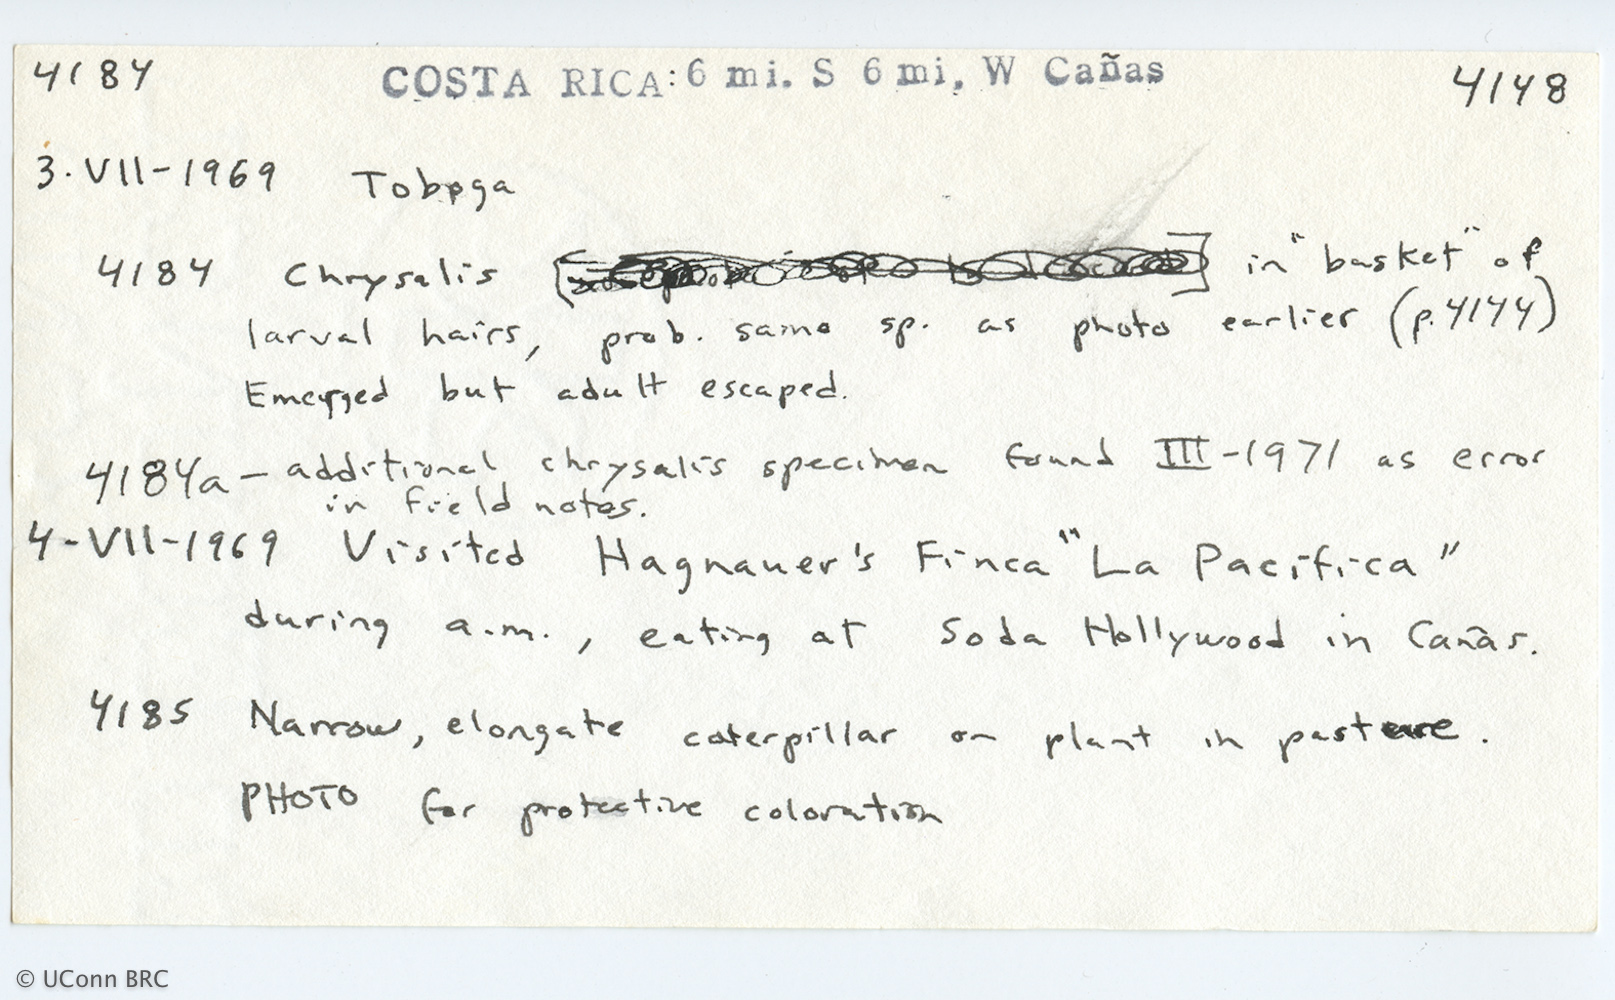 4184 COSTA RICA: 6 mi. S 6 mi. W Cañas 4148
3-VII-1969 Toboga
4184 Chrysalis in "basket" of
larval hairs, prob. same sp. as photo earlier (p. 4144)
Emerged but adult escaped.
4184a - additional chrysalis specimen found III-1971 as error
in field notes.
4-VII-1969 Visited Hagnauer's Finca "La Pacifica"
during a.m., eating at Soda Hollywood in Cañas.
4185 Narrow, elongate caterpillar on plant in pasture.
PHOTO for protective coloration
© UConn BRC